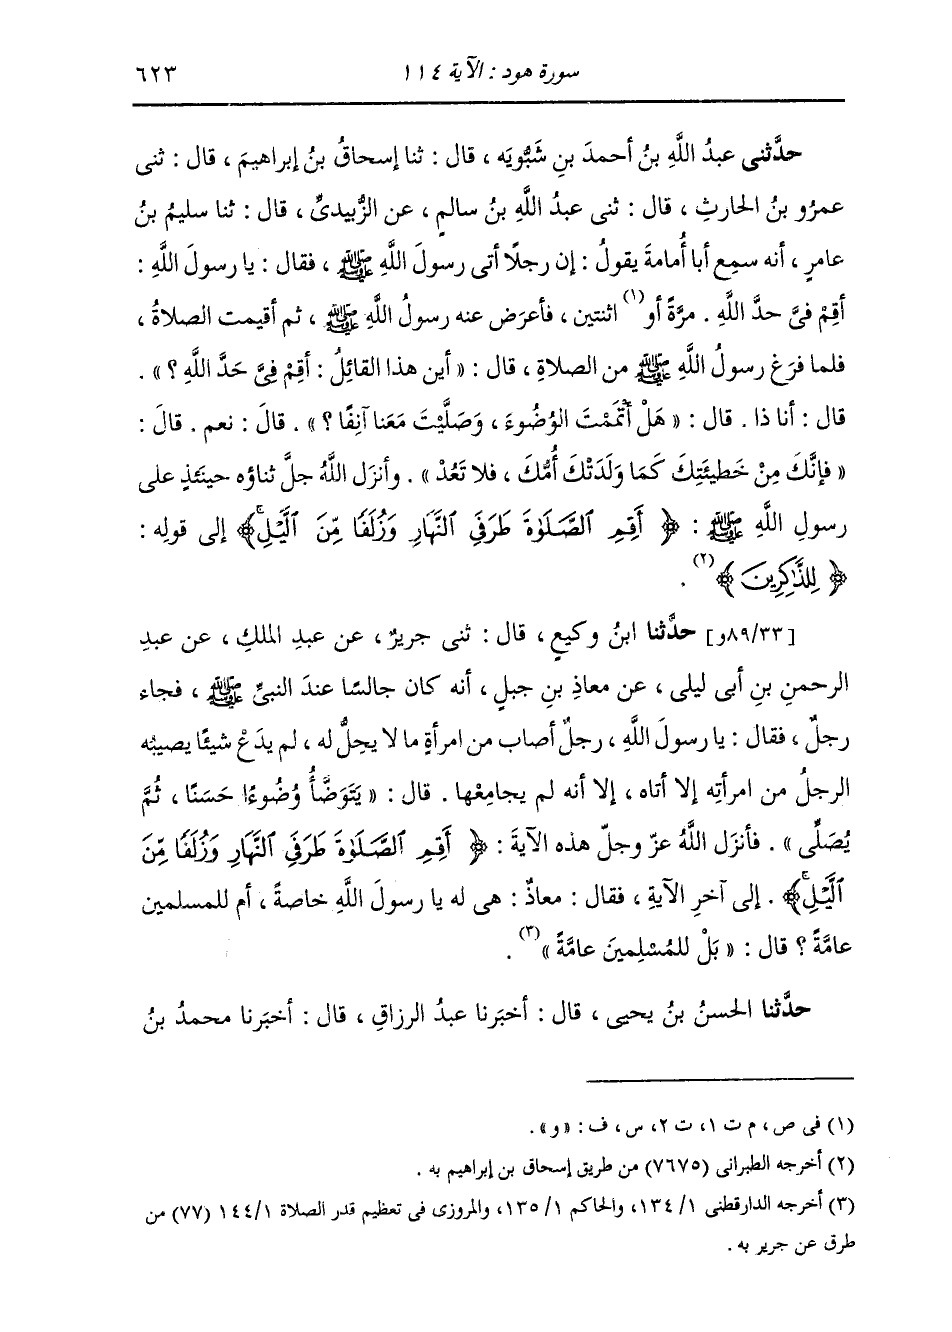 سورة هود : الآية ١١٤ ٦٢٣
حدَّثنى عبدُ اللَّهِ بنُ أحمدَ بنِ شَبُّويَه ، قال : ثنا إسحاقُ بنُ إبراهيمَ ، قال : ثنى
عمرُو بنُ الحارثِ ، قال : ثنى عبدُ اللَّهِ بنُ سالمٍ ، عن الزُّبيدىِّ ، قال : ثنا سليمُ بنُ
عامرٍ ، أنه سمِع أبا أُمامةَ يقولُ : إن رجلًا أتى رسولَ اللَّهِ ﷺ ، فقال : يا رسولَ اللَّهِ :
أقِمْ فىَّ حدَّ اللَّهِ . مرَّةً أو(١) اثنتين ، فأعرَض عنه رسولُ اللَّهِ ﷺ ، ثم أقيمت الصلاةُ ،
فلما فرَغ رسولُ اللَّهِ ﷺ من الصلاةِ ، قال : « أين هذا القائِلُ : أقِمْ فِىَّ حَدَّ اللَّهِ ؟ » .
قال : أنا ذا . قال : « هَلْ أتْمَمْتَ الوُضُوءَ ، وَصَلَّيْتَ مَعَنا آنِفًا ؟ » . قالَ : نعم . قالَ :
« فإنَّكَ مِنْ خَطيئَتِكَ كَمَا وَلَدَتْكَ أُمُّكَ ، فلا تَعُدْ » . وأنزَل اللَّهُ جلَّ ثناؤه حينَئذٍ على
رسولِ اللَّهِ ﷺ : ﴿ أَقِمِ ٱلصَّلَوٰةَ طَرَفَيِ ٱلنَّهَارِ وَزُلَفًا مِّنَ ٱلَّيْلِۚ ﴾ إلى قولِه :
﴿ لِلذَّاكِرِينَ ﴾(٢) .
[٨٩/٣٣و] حدَّثنا ابنُ وكيعٍ ، قال : ثنى جريرٌ ، عن عبدِ الملكِ ، عن عبدِ
الرحمنِ بنِ أبى ليلى ، عن معاذِ بنِ جبلٍ ، أنه كان جالسًا عندَ النبىِّ ﷺ ، فجاء
رجلٌ ، فقال : يا رسولَ اللَّهِ ، رجلٌ أصاب من امرأةٍ ما لا يحِلُّ له ، لم يدَعْ شيئًا يصيبُه
الرجلُ من امرأتِه إلا أتاه ، إلا أنه لم يجامِعْها . قال : « يَتَوَضَّأُ وُضُوءًا حَسَنًا ، ثُمَّ
يُصَلِّى » . فأنزَل اللَّهُ عزّ وجلّ هذه الآيةَ : ﴿ أَقِمِ ٱلصَّلَوٰةَ طَرَفَيِ ٱلنَّهَارِ وَزُلَفًا مِّنَ
ٱلَّيْلِۚ ﴾ . إلى آخرِ الآيةِ ، فقال : معاذٌ : هى له يا رسولَ اللَّهِ خاصةً ، أم للمسلمين
عامَّةً ؟ قال : « بَلْ للمُسْلِمينَ عامَّةً »(٣) .
حدَّثنا الحسنُ بنُ يحيى ، قال : أخبَرنا عبدُ الرزاقِ ، قال : أخبَرنا محمدُ بنُ
(١) فى ص ، م ت ١ ، ت ٢ ، س ، ف : « و » .
(٢) أخرجه الطبرانى (٧٦٧٥) من طريق إسحاق بن إبراهيم به .
(٣) أخرجه الدارقطنى ١/ ١٣٤ ، والحاكم ١/ ١٣٥ ، والمروزى فى تعظيم قدر الصلاة ١٤٤/١ (٧٧) من
طرق عن جرير به .